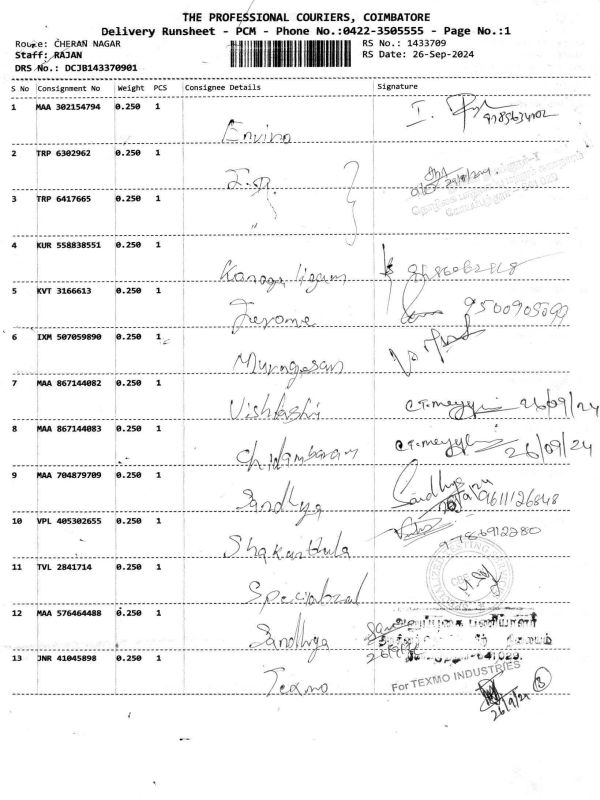 THE PROFESSIONAL COURIERS, COIMBATORE
Delivery Runsheet - PCM - Phone No.:0422-3505555 - Page No.:1
Route: CHERAN NAGAR RS No.: 1433709
Staff: RAJAN RS Date: 26-Sep-2024
DRS No.: DCJB143370901
S No Consignment No Weight PCS Consignee Details Signature
1 MAA 302154794 0.250 1
Enviro
2 TRP 6302962 0.250 1
3 TRP 6417665 0.250 1
"
4 KUR 558838551 0.250 1
5 KVT 3166613 0.250 1
Jerome
6 IXM 507059890 0.250 1
Murugesan
7 MAA 867144082 0.250 1
26/09/24
8 MAA 867144083 0.250 1
Chidambaram 26/09/24
9 MAA 704879709 0.250 1
Sandhya Sandhya 9611126848
10 VPL 405302655 0.250 1
Shakunthala 9786912280
11 TVL 2841714 0.250 1
12 MAA 576464488 0.250 1
Sandhya
13 JNR 41045898 0.250 1
Texmo For TEXMO INDUSTRIES
26/9/24 B